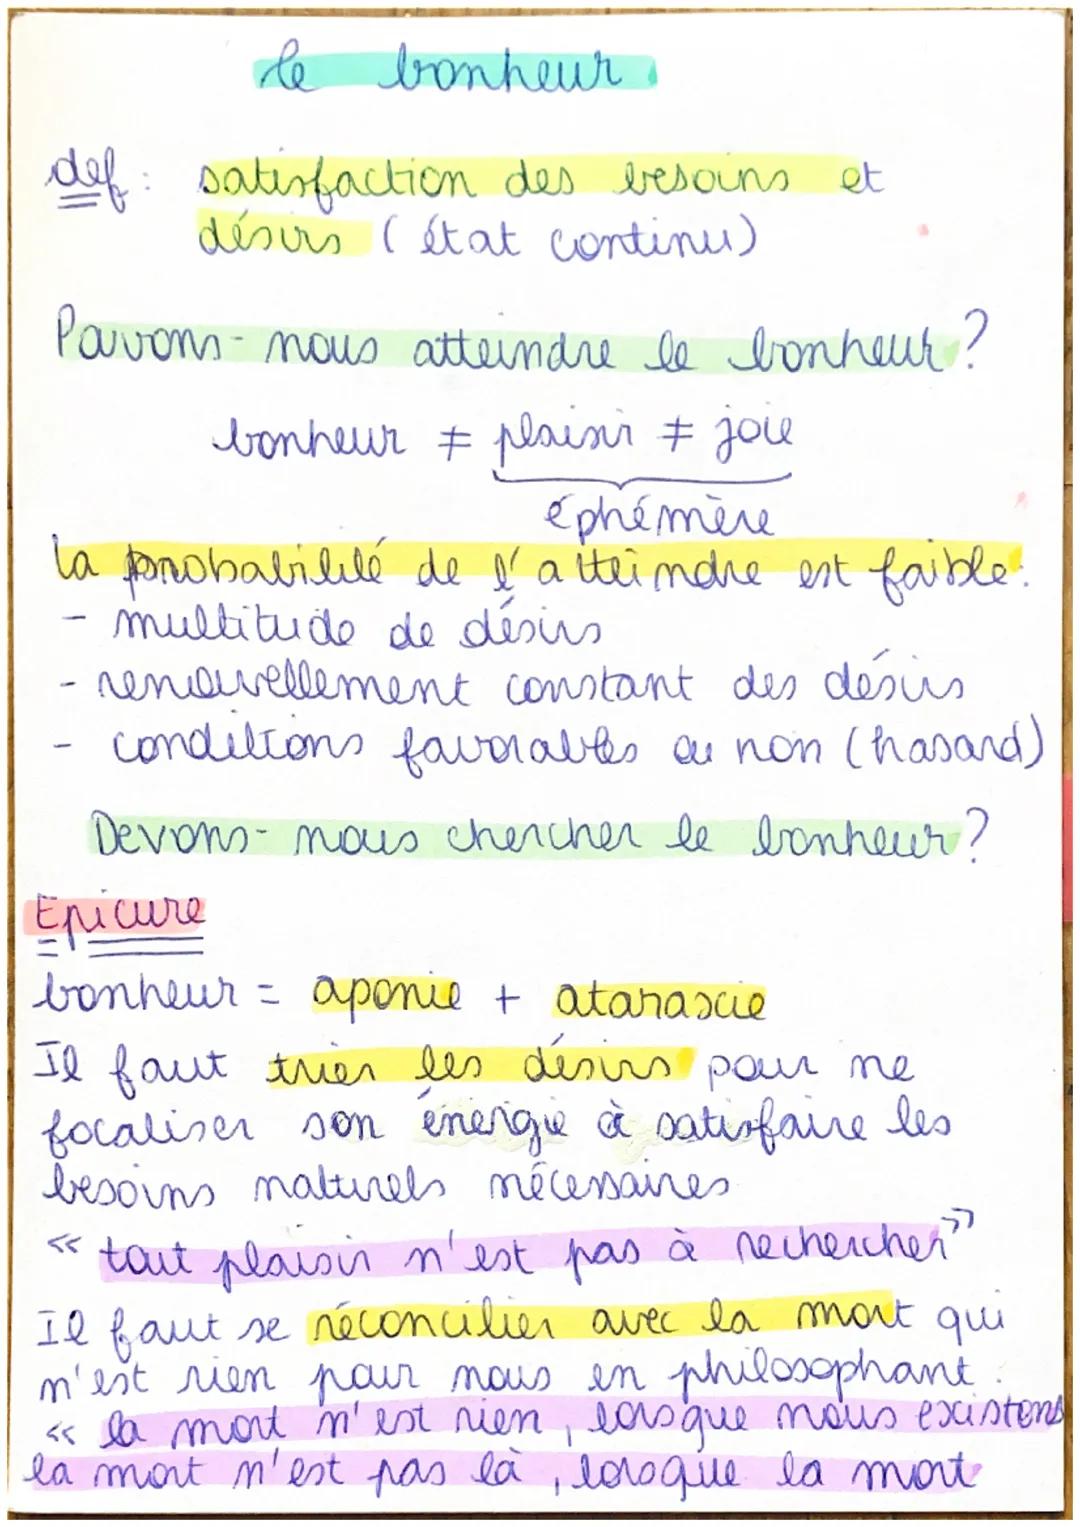 le bonheur
def : satisfaction des besoins et
désirs (état continu)
Pouvons-nous atteindre le bonheur ?
bonheur ≠ plaisir ≠ joie
éphémère
La probabilité de l'atteindre est faible :
- multitude de désirs
- renouvellement constant des désirs
- conditions favorables ou non (hasard)
Devons-nous chercher le bonheur ?
Epicure
bonheur = aponie + ataraxie
Il faut trier les désirs pour ne
focaliser son énergie à satisfaire les
besoins naturels nécessaires
« tout plaisir n'est pas à rechercher »
Il faut se réconcilier avec la mort qui
n'est rien pour nous en philosophant :
« la mort n'est rien, lorsque nous existons
la mort n'est pas là, lorsque la mort